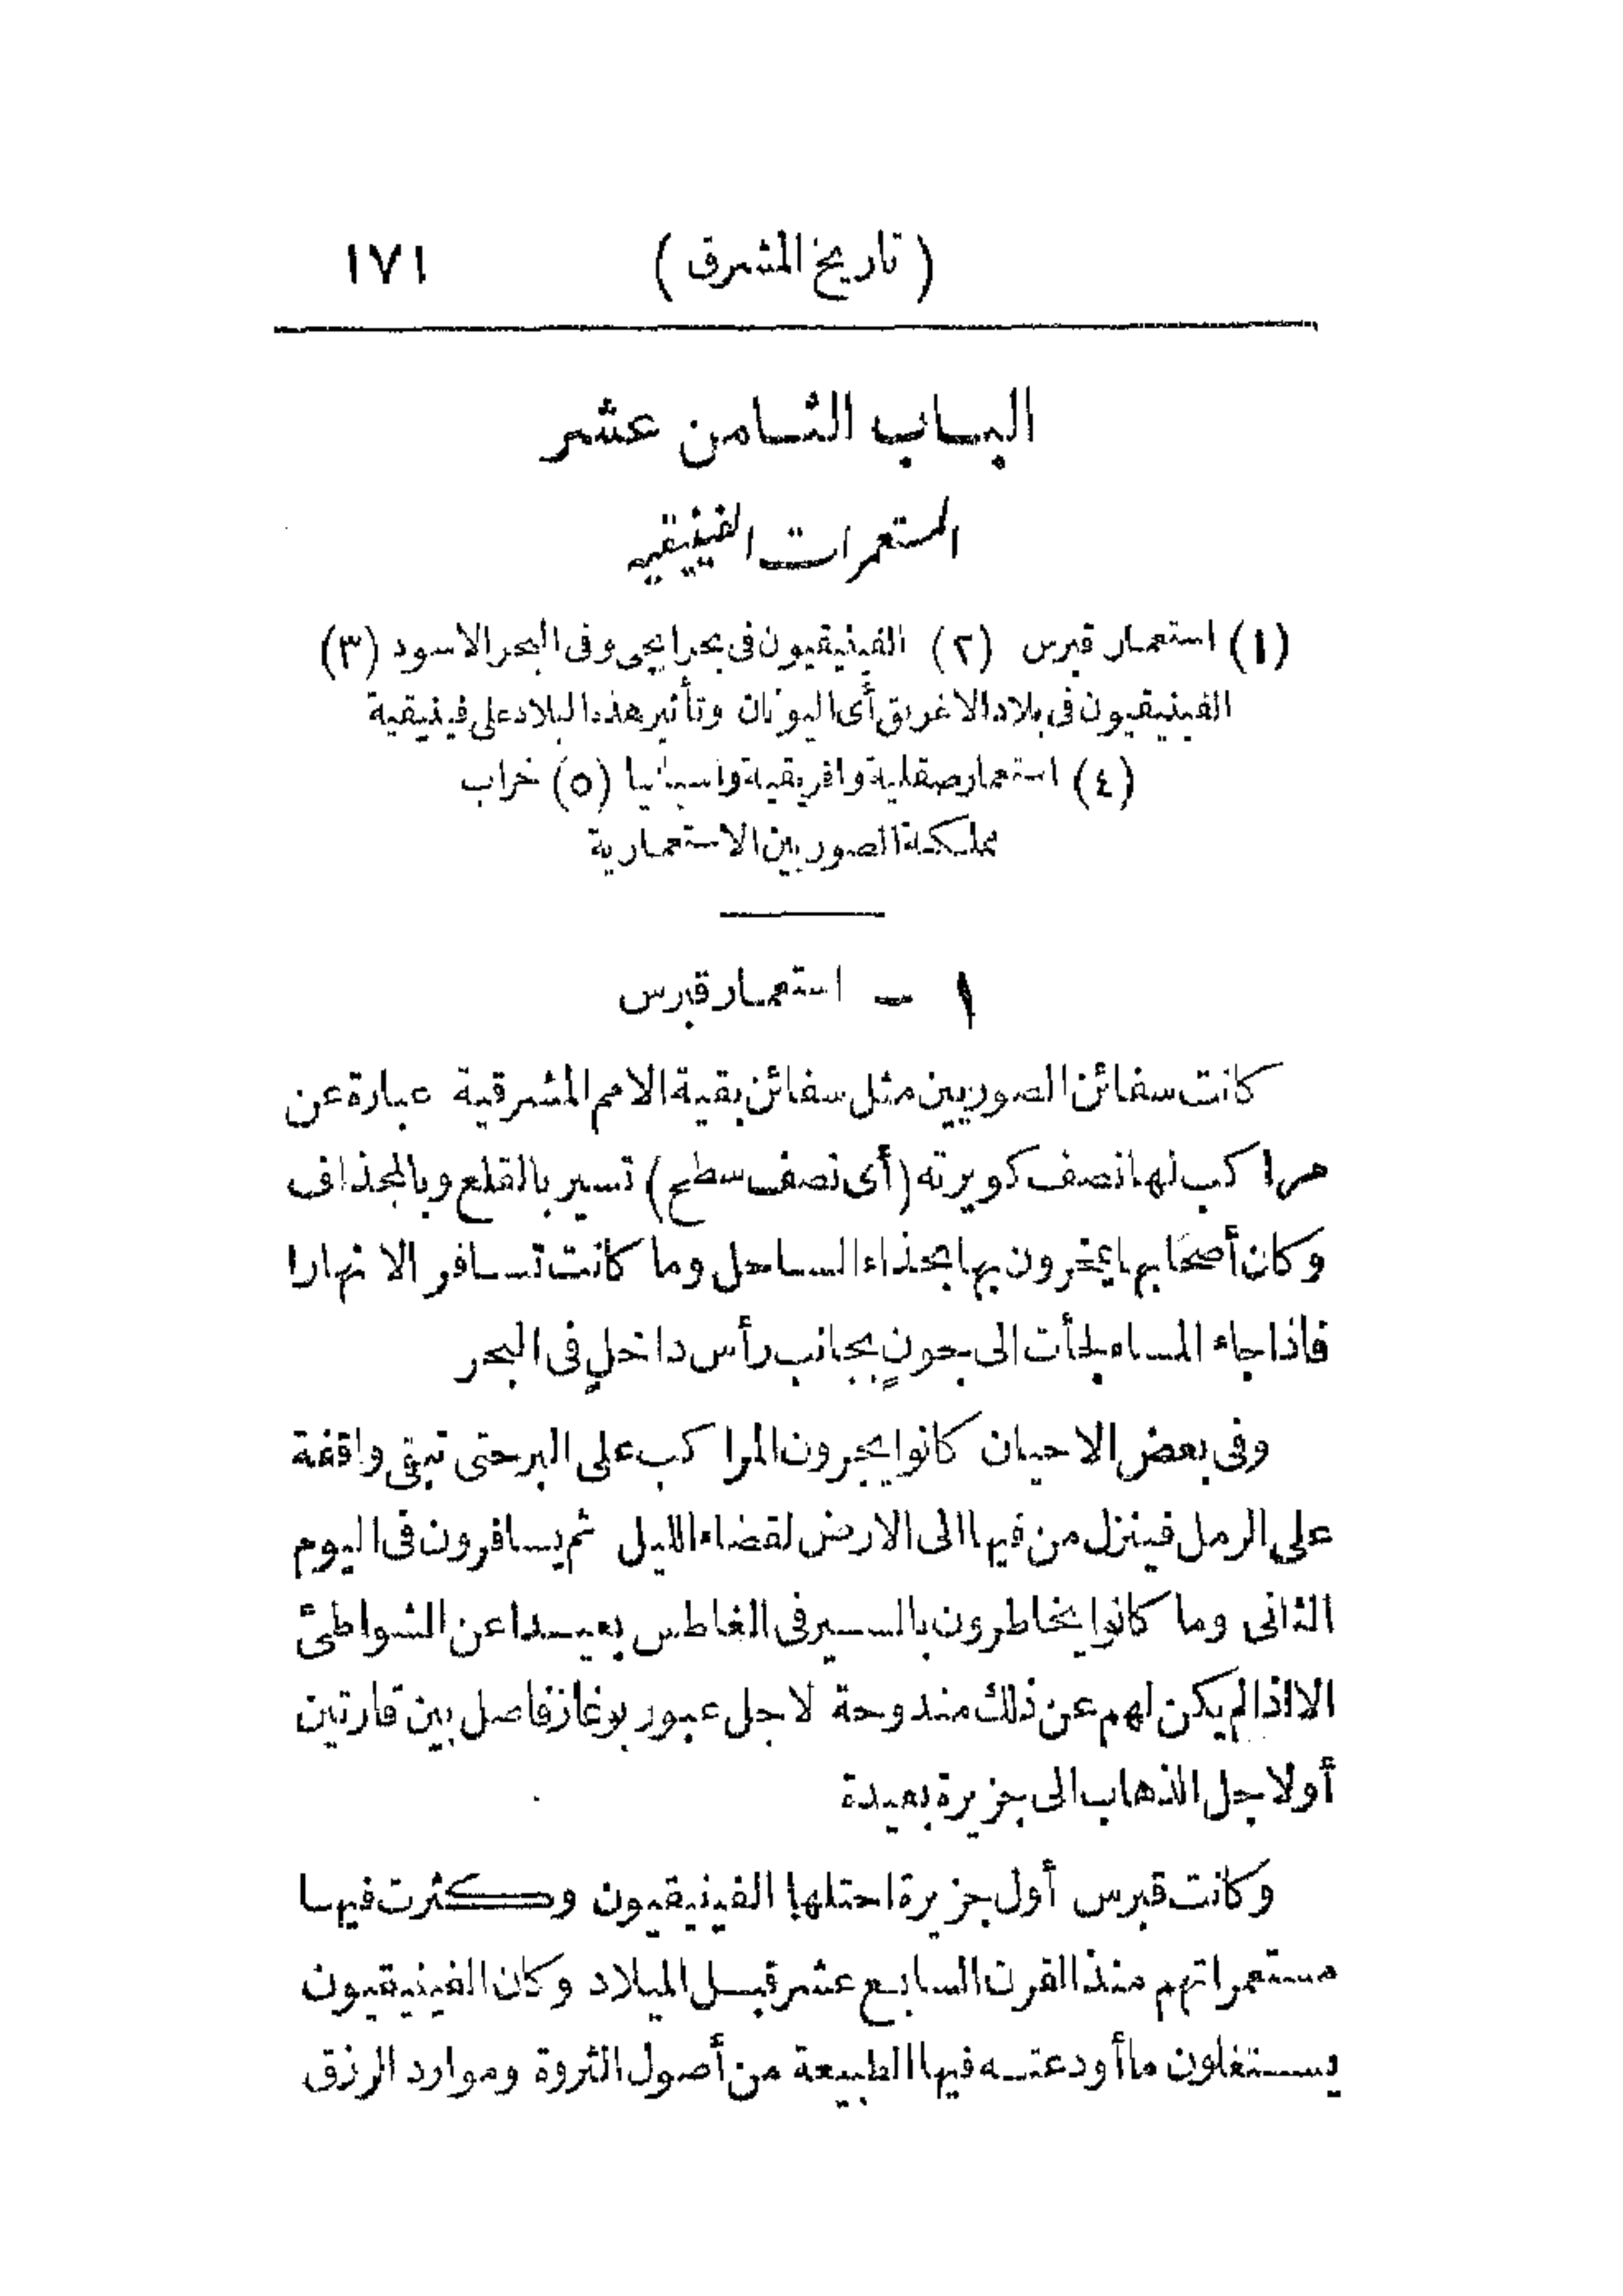 ( تاريخ المشرق ) ١٧١
الباب الثامن عشر
المستعمرات الفينيقيه
(١) استعمار قبرس (٢) الفينيقيون فى بحر ايجى وفى البحر الاسود (٣)
الفينيقيون فى بلاد الاغريق أى اليونان وتأثير هذه البلاد على فينيقية
(٤) استعمار صقلية وافريقية واسبانيا (٥) خراب
مملكة الصوريين الاستعمارية
١ - استعمار قبرس
كانت سفائن الصوريين مثل سفائن بقية الامم المشرقية عبارة عن
مراكب لها نصف كويرته (أى نصف سطح) تسير بالقلع وبالمجذاف
وكان أصحابها يمخرون بها بحذاء الساحل وما كانت تسافر الا نهارا
فاذا جاء المساء لجأت الى جون بجانب رأس داخل فى البحر
وفى بعض الاحيان كانوا يجرون المراكب على البر حتى تبقى واقفة
على الرمل فينزل من فيها الى الارض لقضاء الليل ثم يسافرون فى اليوم
الثانى وما كانوا يخاطرون بالسير فى الغاطس بعيدا عن الشواطئ
الا اذا لم يكن لهم عن ذلك مندوحة لاجل عبور بوغاز فاصل بين قارتين
أو لاجل الذهاب الى جزيرة بعيدة
وكانت قبرس أول جزيرة احتلها الفينيقيون وكثرت فيها
مستعمراتهم منذ القرن السابع عشر قبل الميلاد وكان الفينيقيون
يستغلون ما أودعته فيها الطبيعة من أصول الثروة وموارد الرزق